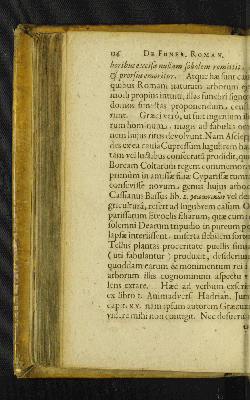 114 DE FUNER. ROMAN.
horibus excisa nullam sobolem remittit,
& prorsus emoritur. Atque hæ sunt cau
quibus Romani naturam arborum
morti propius intuiti, illas funebri signo
domos funestas proponendum,
runt. Græci verò, ut sunt ingenium
rum hominum, magis ad fabulas
nem hujus ritus devolvunt. Nam Asclep
des ex ea causa Cupressum lugubrem
tam vel luctibus consecratā prodidit, quo
Boream Celtarum regem commemorat
primùm in amissæ filiæ Cyparissæ tumu
consevisse novum genus hujus arboris
Cassianus Bassus lib.
gricultura, refert ad lugubrem casum
parissarum Eteoclis filiarum, quæ cum
solemni Dearum tripudio in puteum
lapsæ interiissent, miserta flebilem sortem
Tellus plantas proceritate puellis
(uti fabulantur) produxit, desiderium
quoddam earum & monumentum rei
arborum illis cognominum aspectu
lens extare. Hæc ad verbum
ex libro I. Animadvers. Hadrian. Jun
capit. XX. nam ipsum autorem Græcum
videre mihi non contigit. Nec desunt